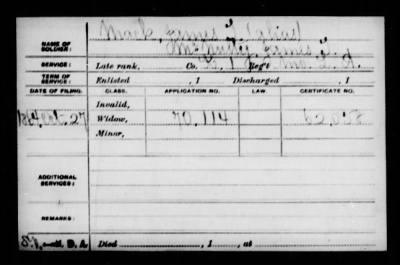 NAME OF SOLDIER: Mack, James T. (alias)
James T.
SERVICE: Late rank, Co. Reg't Mo. L. A.
TERM OF SERVICE: Enlisted , 1 Discharged , 1
DATE OF FILING. CLASS. APPLICATION NO. LAW. CERTIFICATE NO.
Invalid,
1864 Oct. 27 Widow, 70,114 62,058
Minor,
ADDITIONAL SERVICES:
REMARKS:
Died , 1 , at